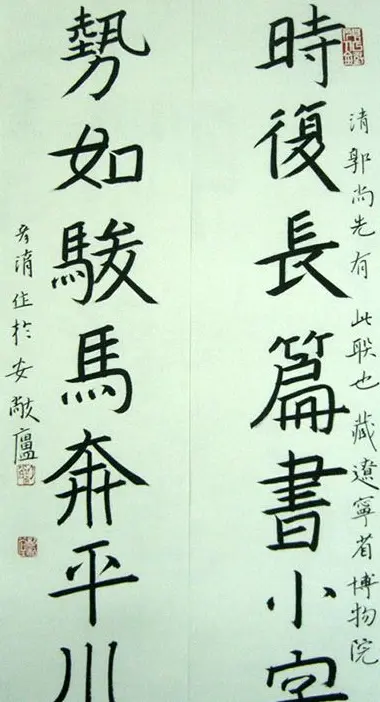 時復長篇書小字
清郭尚先有此联也藏遼寧省博物院
勢如駿馬奔平川
作於安敲廬